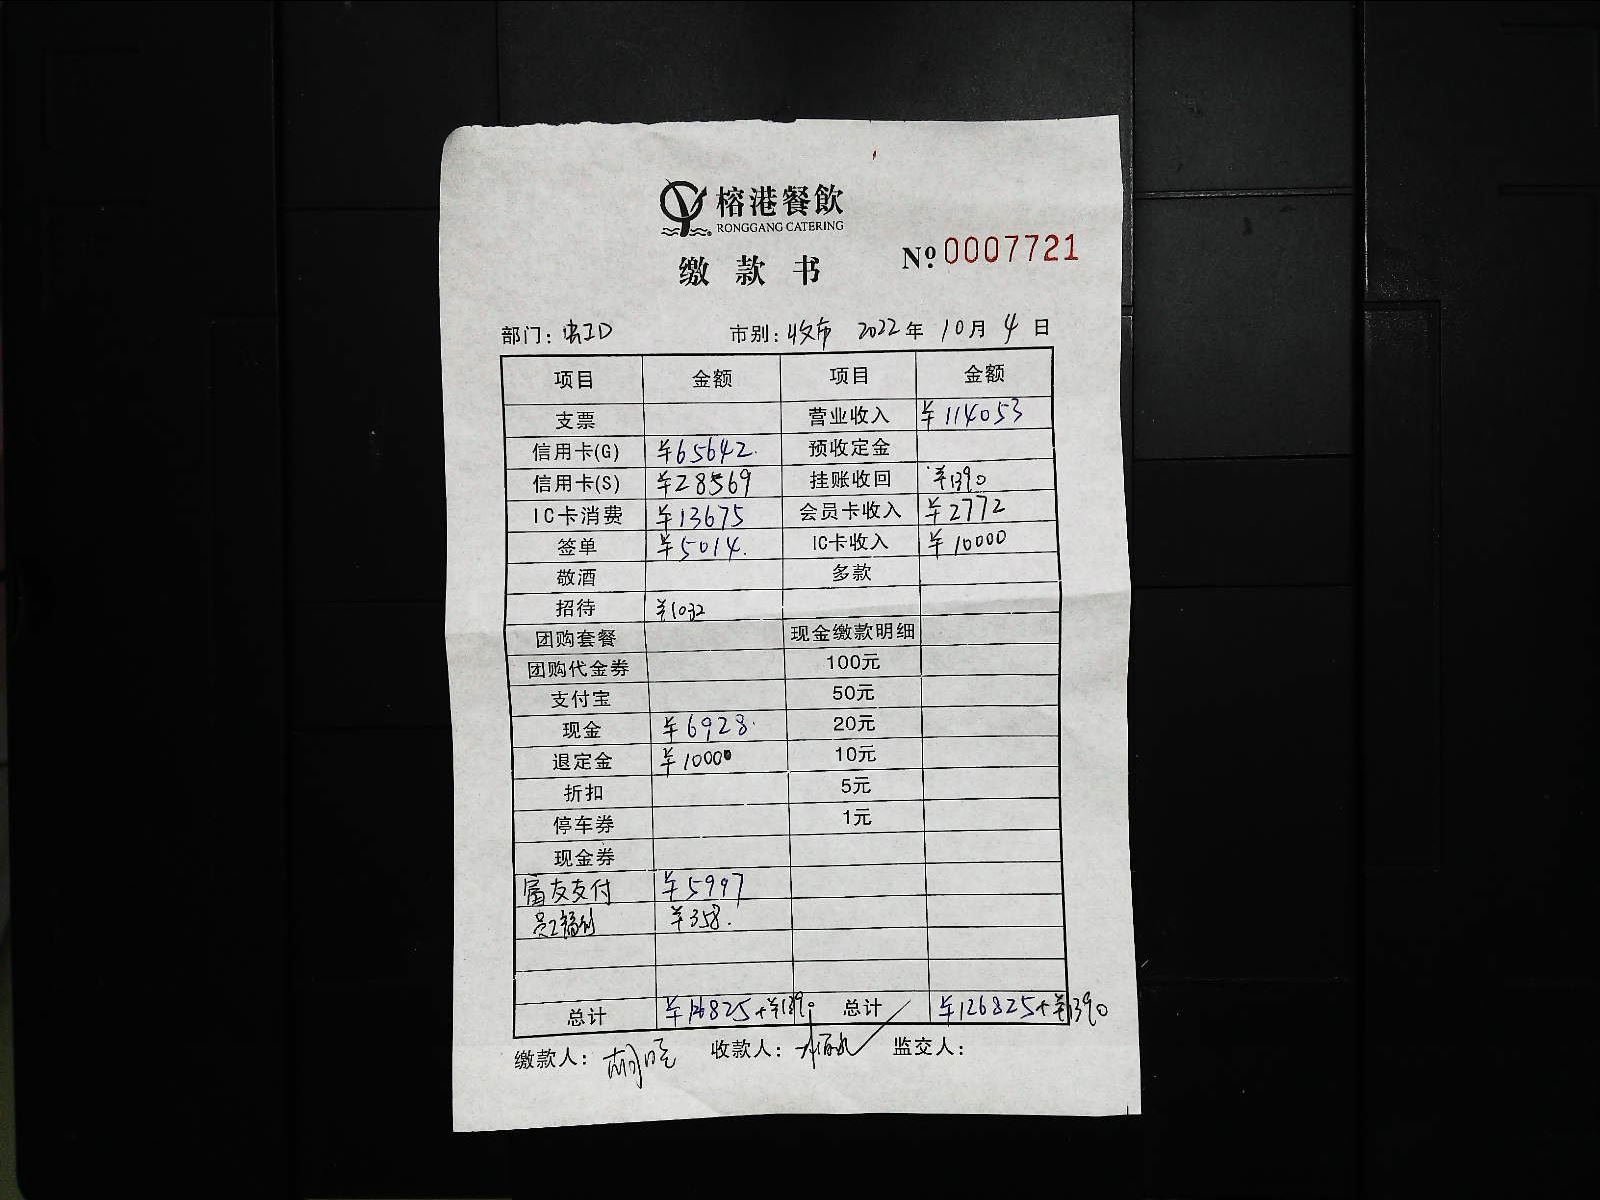 榕港餐飲
RONGGANG CATERING
缴款书 Nº 0007721
部门: 市别: 收市 2022年 10月 4日
项目 金额 项目 金额
支票 营业收入 ¥114053
信用卡(G) ¥65642. 预收定金
信用卡(S) ¥28569 挂账收回 ¥1390
IC卡消费 ¥13675 会员卡收入 ¥2772
签单 ¥5014. IC卡收入 ¥10000
敬酒 多款
招待 ¥1032
团购套餐 现金缴款明细
团购代金券 100元
支付宝 50元
现金 ¥6928. 20元
退定金 ¥10000 10元
折扣 5元
停车券 1元
现金券
富友支付 ¥5997
员工福利 ¥358.
总计 ¥126825+¥1390 总计 ¥126825+¥1390
缴款人: 胡晓 收款人: 监交人: